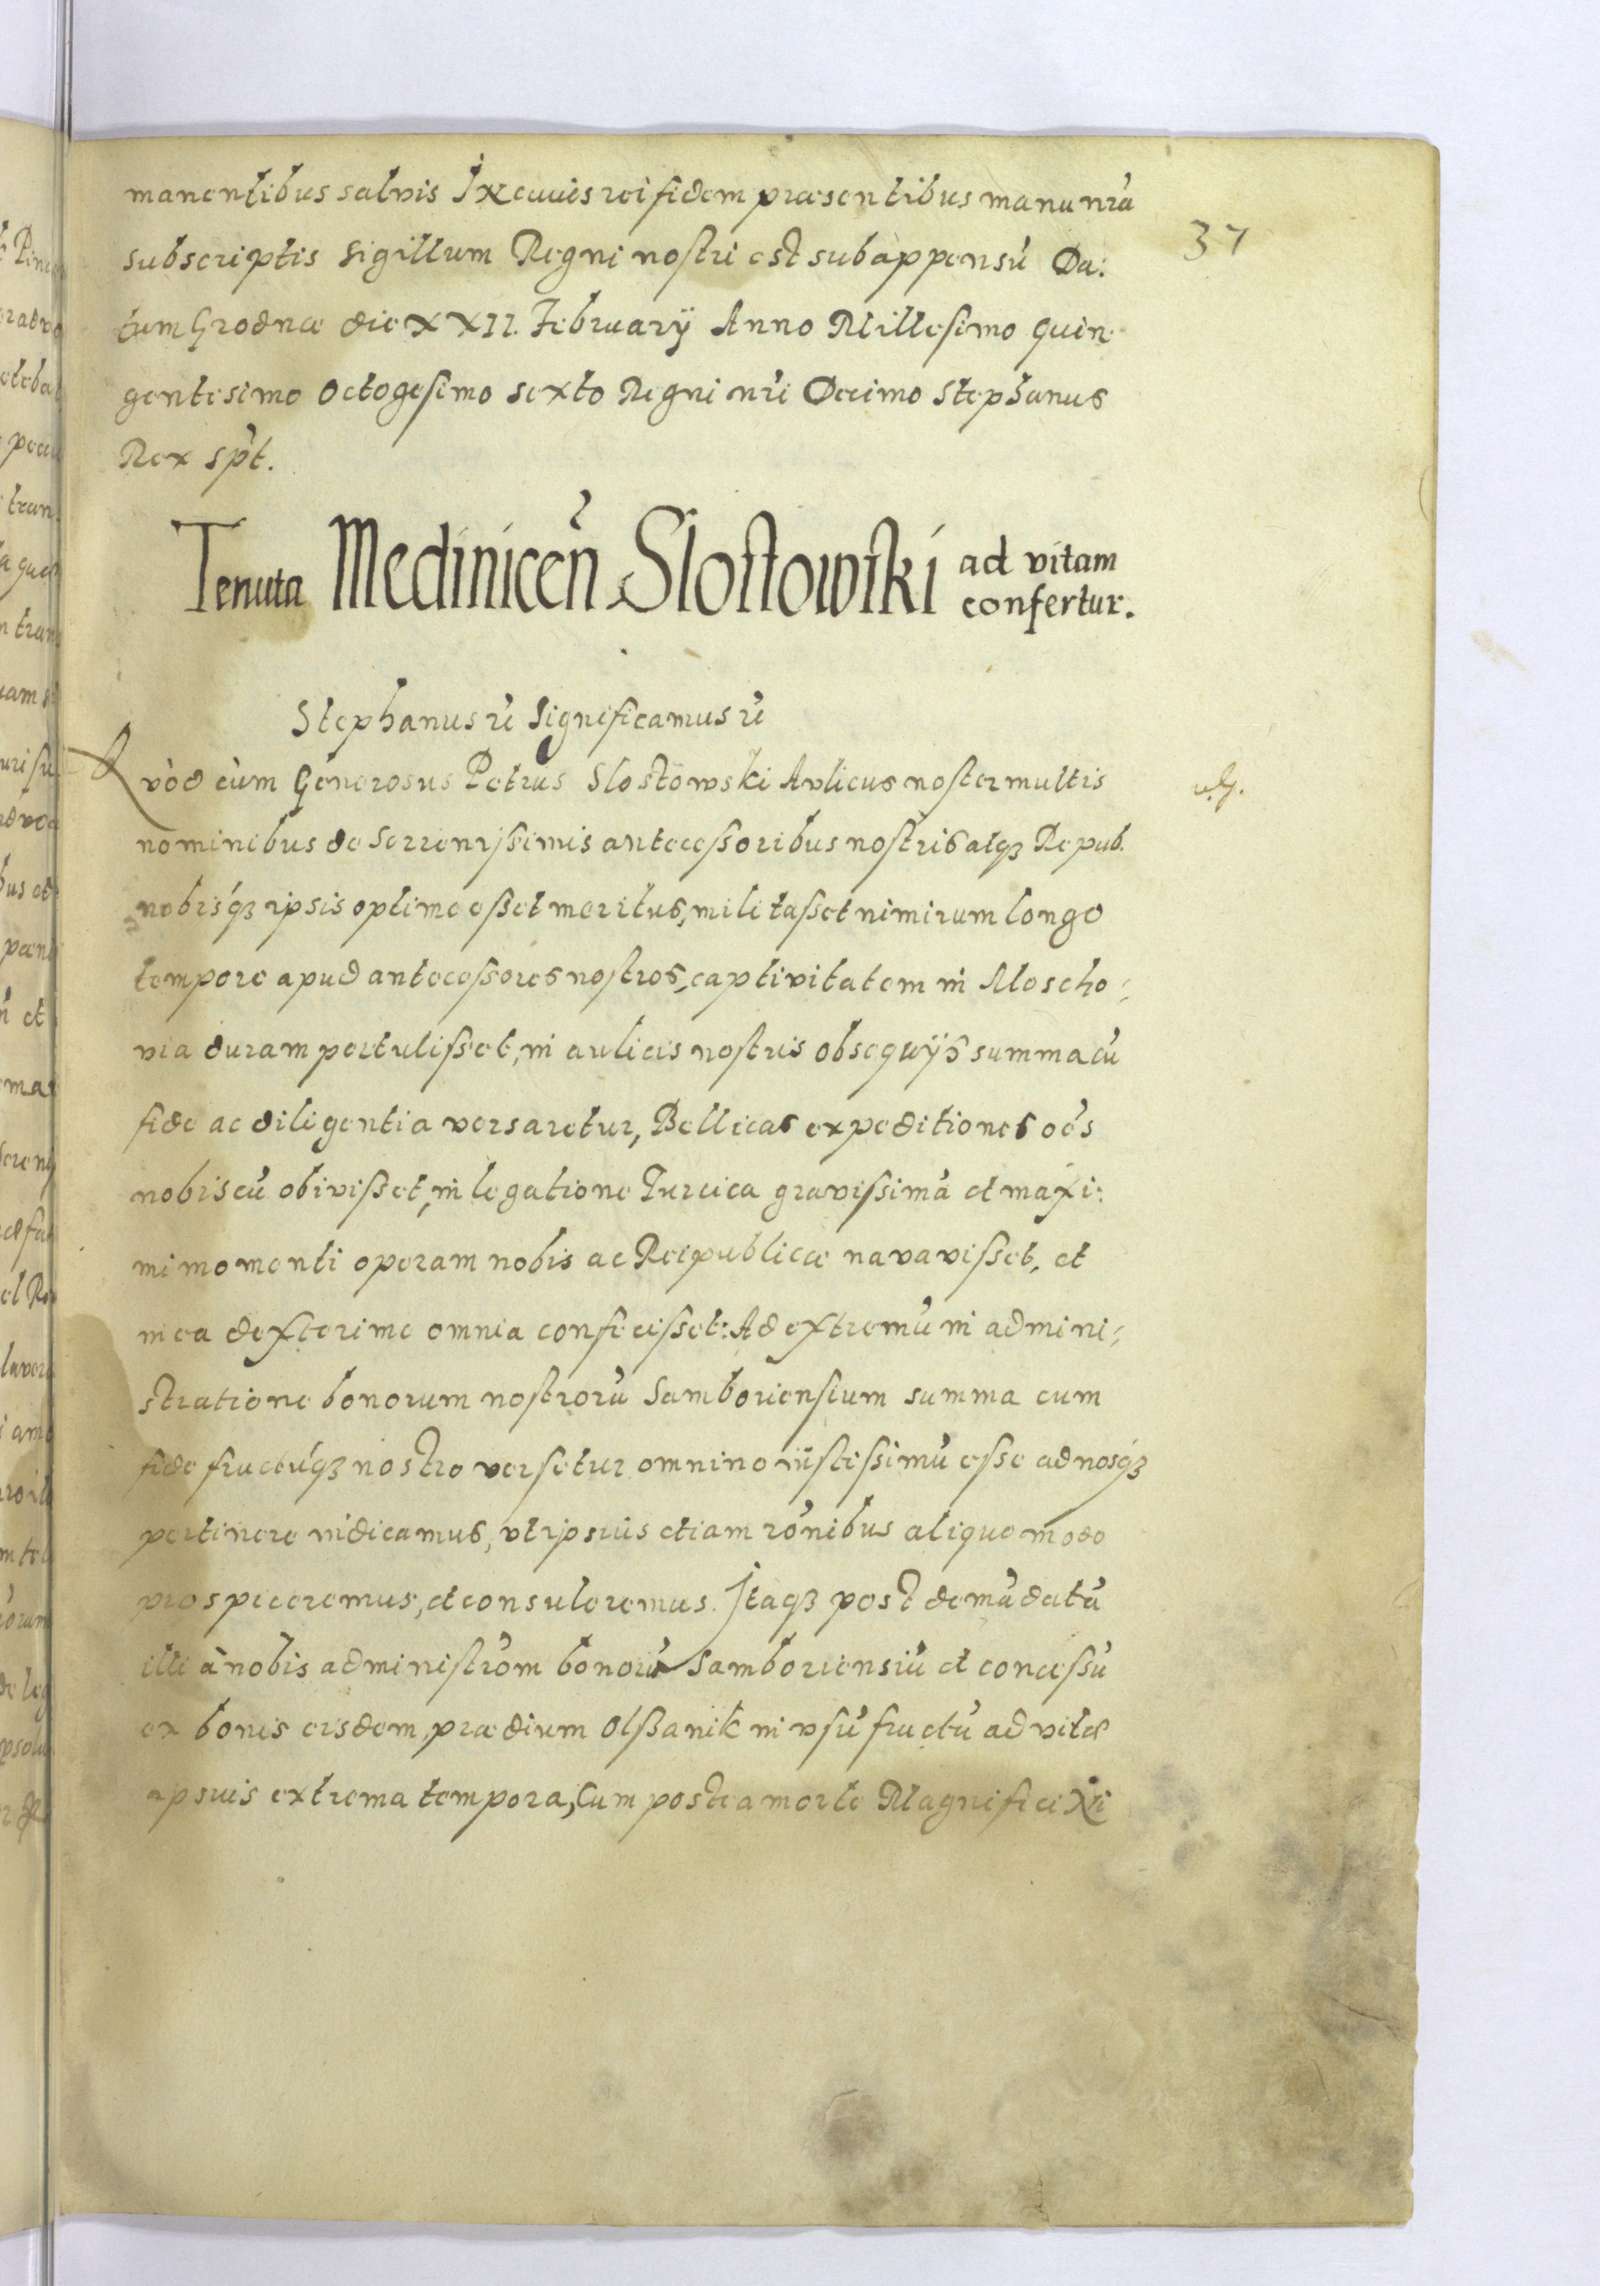 manentibus salvis In cuius rei fidem præsentibus manu nrã
37
subscriptis Sigillum Regni nostri est subappensũ Da:
tum Grodnæ die XXII. February Anno Millesimo quin
gentesimo Octogesimo sexto Regni nri Decimo Stephanus
Rex spt.
Tenuta Medinicen Slostowski ad vitam
confertur.
Stephanus &c Significamus &c
Qvod cùm Generosus Petrus Slostowski Avlicus noster multis
nominibus de Serrenissimis antecessoribus nostris atqȝ Repub.
nobisqȝ ipsis optime esset meritus, militasset nimirum longo
tempore apud antecessores nostros, captivitatem in Moscho:
via duram pertulisset, in aulicis nostris obsequijs summa cũ
fide ac diligentia versaretur, Bellicas expeditiones oẽs
nobiscũ obivisset, in legatione Turcica gravissimâ et maxi:
mi momenti operam nobis ac Reipublicæ navavisset, et
in ea dexterime omnia confecisset: Ad extremũ in admini:
stratione bonorum nostrorũ Samboriensium summa cum
fide fructuqȝ nostro versetur omnino iustissimũ esse ad nosqȝ
pertinere iudicamus, vt ipsius etiam rõnibus aliquo modo
prospiceremus, et consuleremus. Itaqȝ post demãdatã
illi à nobis administrõm bonorũ Samboriensiũ et concessũ
ex bonis eisdem, prædium Olßanik in vsũfructũ ad vitæ
ipsius extrema tempora, Cum postea morte Magnifici Ni